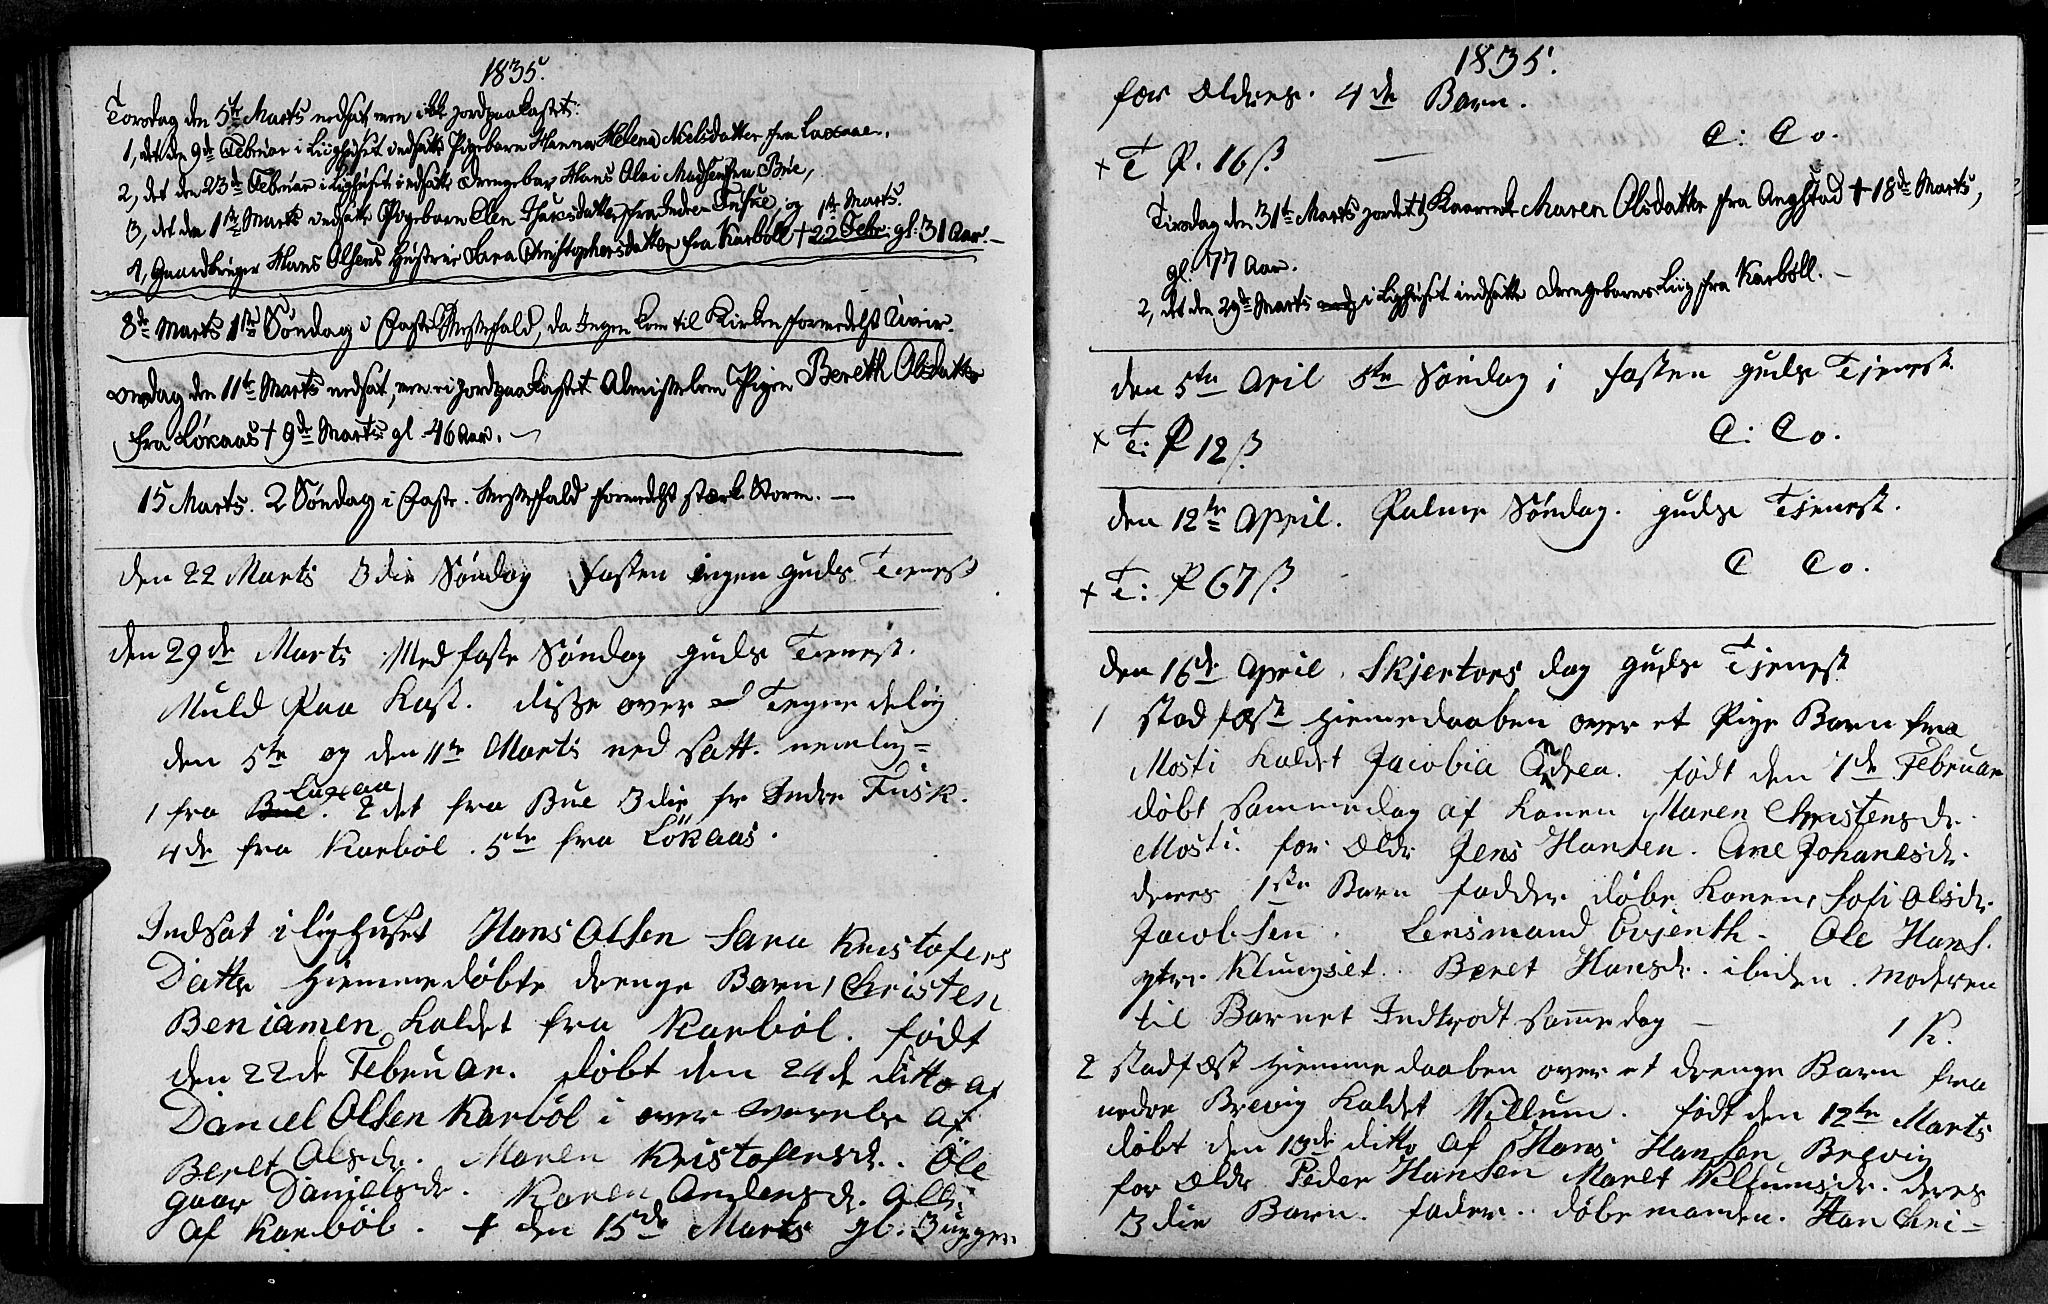 1835.
Torsdag den 5te Marts nedsat men ikke jordpaakastet:
1, det den 9de Februar i Liighuset indsatte Pigebarn Hanna Helena Nielsdatter fra Laxaae,
2, det den 23de Februar i Liighuset indsatte Drengebar Hans Olai Madsen fra Bue,
3, det den 1ste Marts indsatte Pigebarn Elen fra Indre Fuske, og 1ste Marts.
4, Gaardbruger Hans Olsens Hustrue Sara Christophersdatter fra Karbøll † 22 Febr. gl. 31 Aar. —
8de Marts 1ste Søndag i Faste Messefald, da Ingen kom til Kirken formedelst Uveir.
Onsdag den 11te Marts nedsat, men ei jordpaakastet Almisselem Pigen Bereth Olsdatter
fra Løkaas † 9de Marts gl. 46 Aar. —
15 Marts. 2 Søndag i Faste. Messefald formedelst stærk Storm. —
den 22 Marts 3die Søndag i fasten ingen guds Tienest
den 29de Marts Med faste Søndag guds Tienest.
Muld Paa Kast. disse over Tegnede lig
den 5te og den 11te Marts ned satt. nemlig =
Laxaa
1 fra Bue. 2det fra Bue 3die fr Indre Fusk.
4de fra Karbøl. 5te fra Lökaas.
Indsat i lighuset Hans Olsen Sara Kristofers
Datter Hiemmedøbte drenge Barn, Christen
Beniamen kaldet fra Karbøl. født
den 22de Februar. døbt den 24de ditto af
Daniel Olsen Karbøl i over værelse af
Beret Olsdr. Maren Kristofersdr. Öle
gaar Danielsdr. Karen Andersdr. alle
af Karbøl. † den 15de Marts gl. 3 uger.
1835.
for Oldres. 4de Barn.
C: Co.
+ T P. 16 ß
Tirsdag den 31te Marts jordet 1, Kaarenk Maren Olsdatter fra Angstad † 18de Marts,
gl. 77 Aar.
2, det den 29de Marts i Liighuset indsatte Drengebarns Liig fra Karbøll. —
den 5te April 5te Søndag i fasten guds Tjenest.
C: Co.
× T: P 12 ß
den 12te April. Palme Søndag. guds Tjenest.
C Co.
+ T: P 67 ß
den 16de April. Skjertors dag guds Tjenest
1 stad fæst Hiemmedaaben over et Pige Barn fra
Mosti kaldet Jacobia Andrea. født den 1de Februar
døbt samme dag af Konen Maren Christensdr.
Mosti. for Oldr Jens Hansen. Ane Johanesdr.
deres 1ste Barn faddere døbe Konen, Sofi Olsdr.
Jacobsen. Lensmand Evjenth. Ole Hans.
Klungset. Beret Hansdr. ibiden. Moderen
til Barnet Indtrodt samme dag — 1 K.
2 stadfæst Hiemmedaaben over et drenge Barn fra
nedre Brevig kaldet Willum. født den 12te Marts
døbt den 13de ditto af Hans Hansen Brevig
for Oldr Peder Hansen Maret Willumsdr. deres
3die Barn. fader. døbe manden. Han Chri=